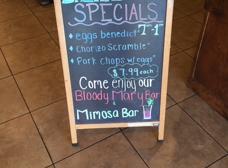 SPECIALS
eggs benedict 7-1
Chorizo Scramble
Pork Chops w/ eggs
$7.99 each
Come enjoy our
Bloody Mary Bar
Mimosa Bar